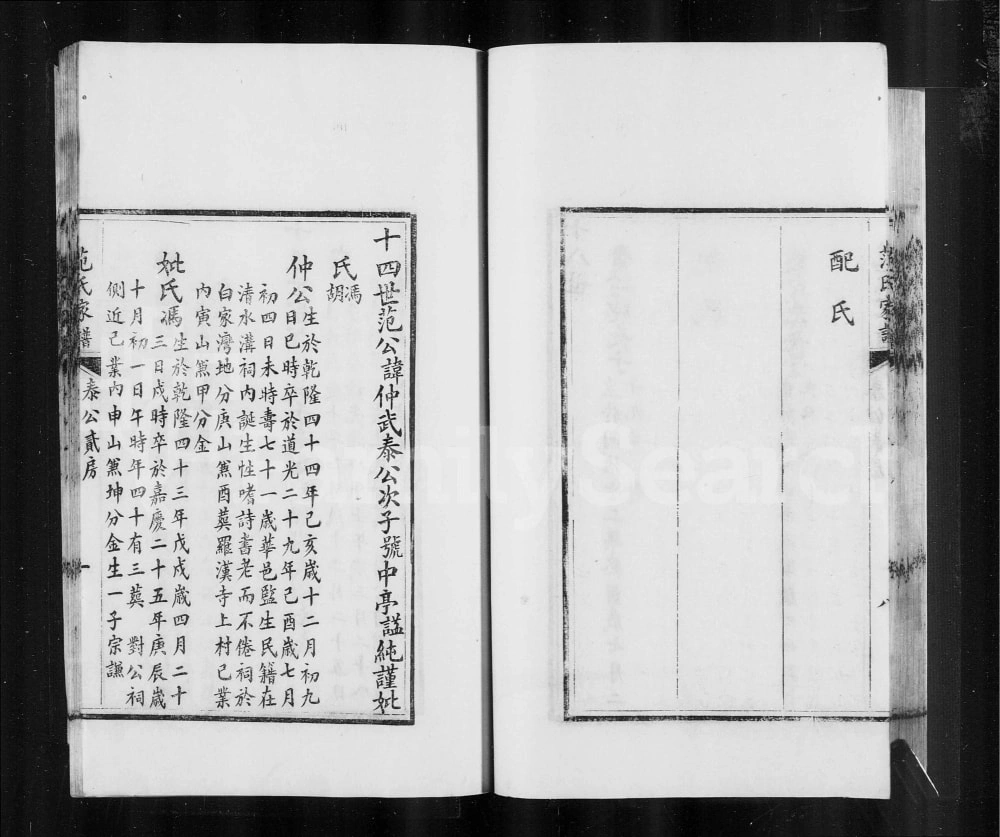 范氏家譜
八
配氏
十四世范公諱仲武泰公次子號中亭諡純謹妣
氏馮
胡
仲公生於乾隆四十四年己亥歲十二月初九
日巳時卒於道光二十九年己酉歲七月
初四日未時壽七十一歲華邑監生民籍在
清水溝祠內誕生性嗜詩書老而不倦祠於
白家灣地分庚山兼酉葬羅漢寺上村己業
內寅山兼甲分金
妣氏馮生於乾隆四十三年戊戌歲四月二十
三日戌時卒於嘉慶二十五年庚辰歲
十月初一日午時年四十有三葬 對公祠
側近己業內申山兼坤分金生一子宗謙
范氏家譜
泰公貳房
一
FamilySearch